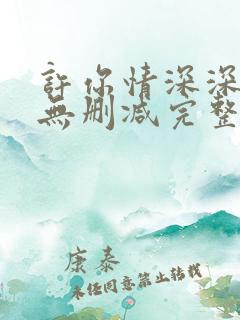 許你情深深
無删减完整
康泰
未经同意禁止转载